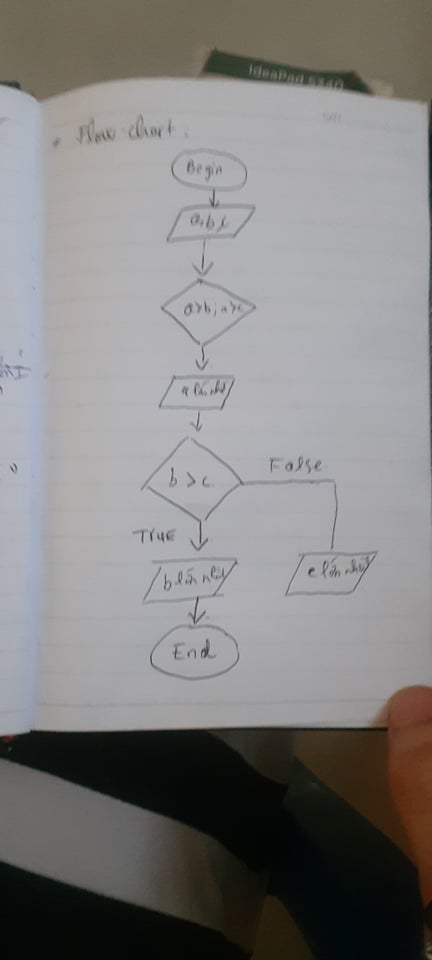 IdeaPad S340
* Flow chart:
Begin
a,b,c
a>b; a>c
a lớn nhất
b > c
False
TRUE
b lớn nhất
c lớn nhất
End